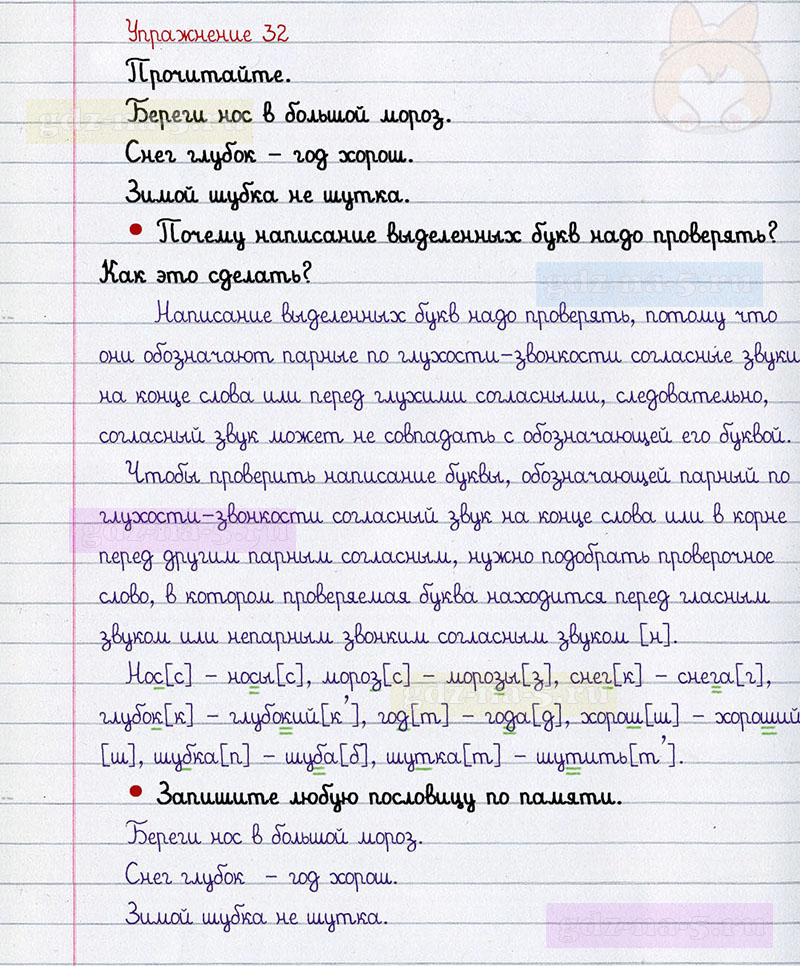 Упражнение 32
Прочитайте.
Береги нос в большой мороз.
Снег глубок – год хорош.
Зимой шубка не шутка.
• Почему написание выделенных букв надо проверять?
Как это сделать?
Написание выделенных букв надо проверять, потому что
они обозначают парные по глухости-звонкости согласные звуки
на конце слова или перед глухими согласными, следовательно,
согласный звук может не совпадать с обозначающей его буквой.
Чтобы проверить написание буквы, обозначающей парный по
глухости-звонкости согласный звук на конце слова или в корне
перед другим парным согласным, нужно подобрать проверочное
слово, в котором проверяемая буква находится перед гласным
звуком или непарным звонким согласным звуком [н].
Нос[с] – носы[с], мороз[с] – морозы[з], снег[к] – снега[г],
глубок[к] – глубокий[к'], год[т] – года[д], хорош[ш] – хороший
[ш], шубка[п] – шуба[б], шутка[т] – шутить[т'].
• Запишите любую пословицу по памяти.
Береги нос в большой мороз.
Снег глубок – год хорош.
Зимой шубка не шутка.
gdz-na-5.ru
gdz-na-5.ru
gdz-na-5.ru
gdz-na-5.ru
gdz-na-5.ru